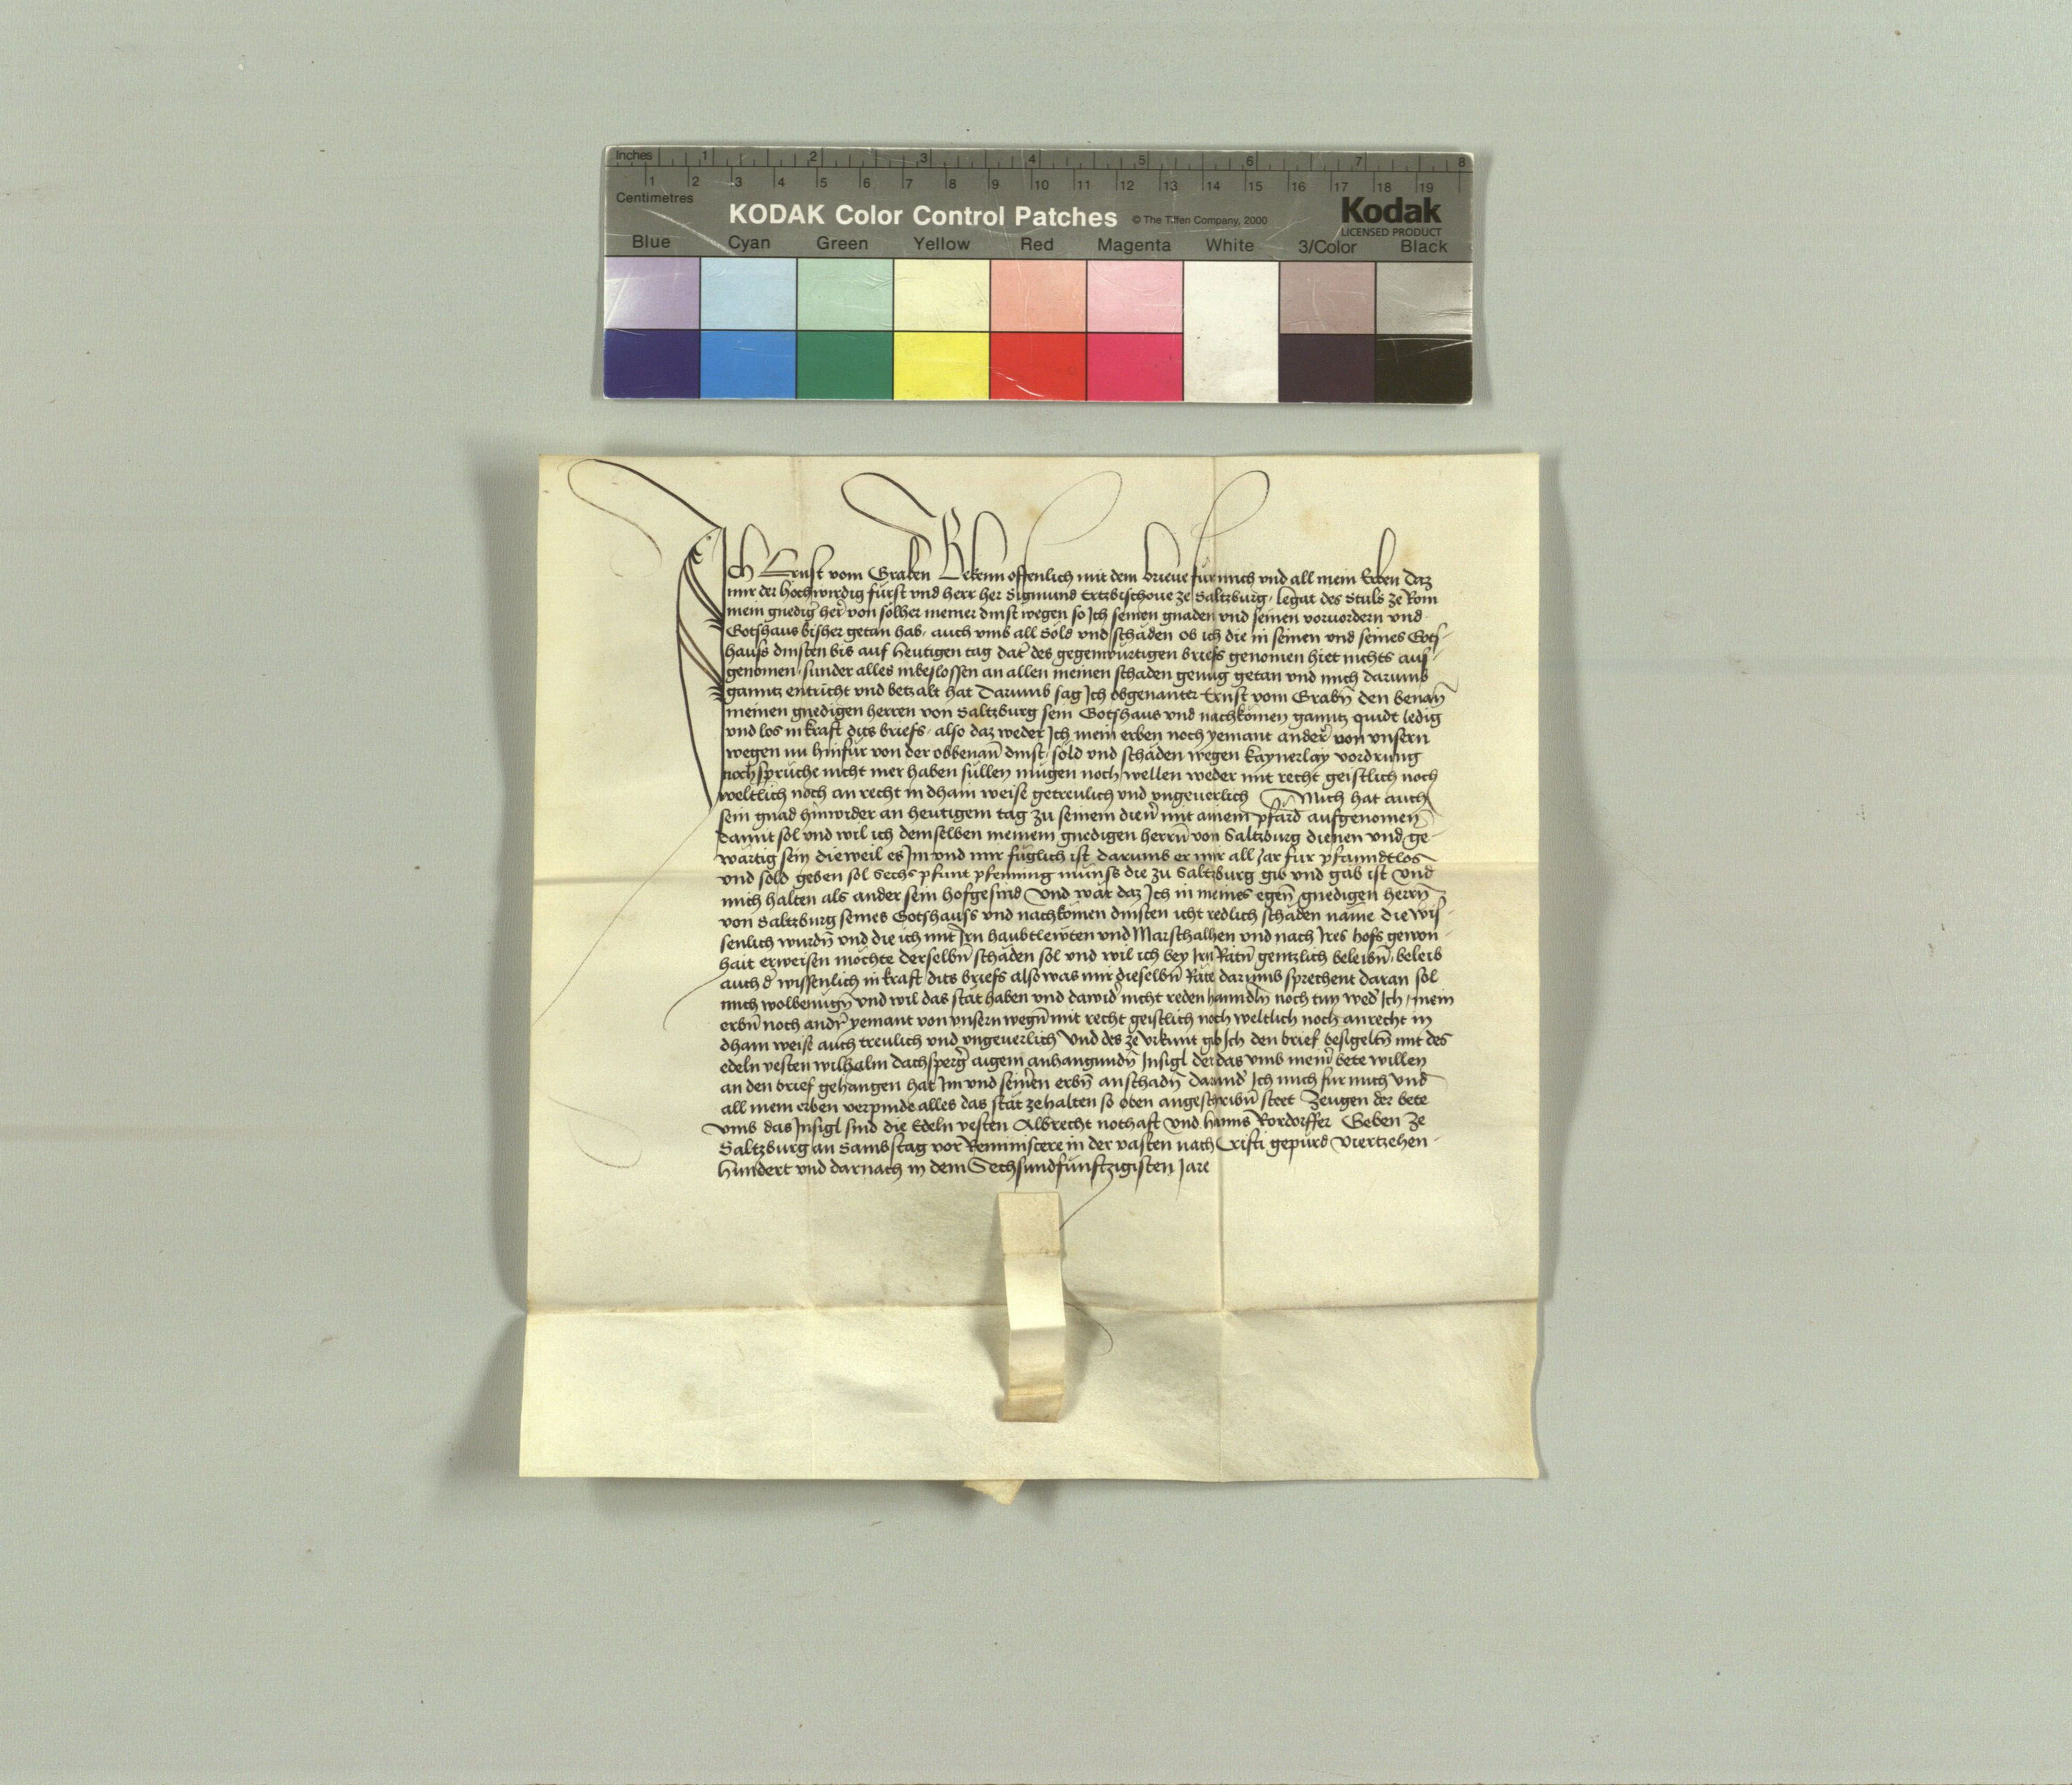 Inches 1 2 3 4 5 6 7 8
1 2 3 4 5 6 7 8 9 10 11 12 13 14 15 16 17 18 19
Centimetres
KODAK Color Control Patches © The Tiffen Company, 2000 Kodak
LICENSED PRODUCT
Blue Cyan Green Yellow Red Magenta White 3/Color Black
Ich Ernst vom Graben Bekenn offenlich mit dem brieue für mich vnd all mein Erben daz
mir der hochwirdig fürst vnd herr her Sigmund Ertzbischoue ze Saltzburg, legat des Stuls ze Rom
mein gnedig̃ her̃ von solher meiner dinst wegen so Ich seinen gnaden vnd seinen voruordern vnd
Gotshaus bisher getan hab, auch vmb all Sold vnd schäden ob ich die in seinen vnd seines Gots-
hauss dinsten bis auf heutigen tag dat̃ des gegenwürtigen briefs genomen hiet nichts aus-
genomen, sunder alles inbeslossen an allen meinen schaden genug getan vnd mich darumb
ganntz entricht vnd betzalt hat Darumb sag Ich obgenanter Ernst vom Grabñ den benañ
meinen gnedigen herren von Saltzburg sein Gotshaus vnd nachkomen ganntz quidt ledig
vnd los in kraft dits briefs, also daz weder Ich mein erben noch yemant ander̃ von vnsern
wegen nu hinfür von der obbenañ dinst, sold vnd schäden wegen kaynerlay vordrung
noch sprüche nicht mer haben süllen mügen noch wellen weder mit recht geistlich noch
weltlich noch an recht in dhain weise getreulich vnd vngeuerlich Mich hat auch
sein gnad hinwider an heutigem tag zu seinem dieñ mit ainem pfärd aufgenomen
damit sol vnd wil ich demselben meinem gnedigen herrñ von Saltzburg dienen vnd ge-
wärtig sein dieweil es Im vnd mir füglich ist darumb er mir all Jar für pfanndtlos
vnd sold geben sol Sechs pfunt pfenning münss die zu Saltzburg gib vnd gäb ist Vnd
mich halten als ander sein hofgesind Vnd wär daz Ich in meines egeñ gnedigen herrñ
von Saltzburg seines Gotshauss vnd nachkomen dinsten icht redlich schäden näme die wis-
senlich wurdñ vnd die ich mit Irn haubtlewten vnd Marschalhen vnd nach Ires hofs gewon-
hait erweisen möchte derselbñ schäden sol vnd wil ich bey Irñ Rätñ gentzlich beleibñ, beleib
auch d̃ wissenlich in kraft dits briefs also was mir dieselbñ Räte darumb sprechent daran sol
mich wolbenügñ vnd wil das stät haben vnd dawid̃ nicht reden hanndlñ noch tun wed̃ Ich, mein
erbñ noch andr̃ yemant von vnsern wegñ mit recht geistlich noch weltlich noch anrecht in
dhain weise auch treulich vnd vngeuerlich Vnd des ze vrkunt gib Ich den brief besigeltñ mit des
edeln vesten wilhalm dachsperg̃ aigem anhangundñ Insigl der das vmb meiñ bete willen
an den brief gehangen hat Im vnd seinen erbñ anschadñ darund̃ Ich mich für mich vnd
all mein erben verpinde alles das stät ze halten so oben angeschribñ steet Zeugen der bete
vmb das Insigl sind die Edeln vesten Albrecht nothaft vnd hanns Rordorffer Geben ze
Saltzburg an Sambstag vor Reminiscere in der vasten nach Cristi gepurd Viertzehen-
hundert vnd darnach in dem Sechsundfünftzigisten Jare